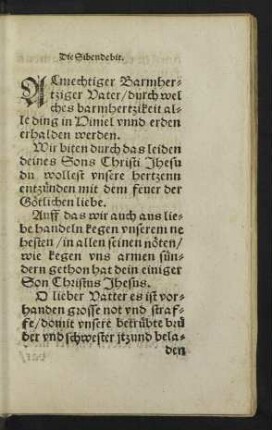 Die Sibendebit.
Almechtiger Barmher-
tziger Vater/durch wel
ches barmhertzikeit al-
le ding in Himel vnnd erden
erhalden werden.
Wir biten durch das leiden
deines Sons Christi Jhesu
du wollest vnsere hertzenn
entzünden mit dem feuer der
Götlichen liebe.
Auff das wir auch aus lie-
be handeln kegen vnserem ne
hesten/in allen seinen nöten/
wie kegen vns armen sün-
dern gethon hat dein einiger
Son Christus Jhesus.
O lieber Vatter es ist vor-
handen grosse not vnd straf-
fe/domit vnsere betrübte brü
der vnd schwester itzund bela-
den